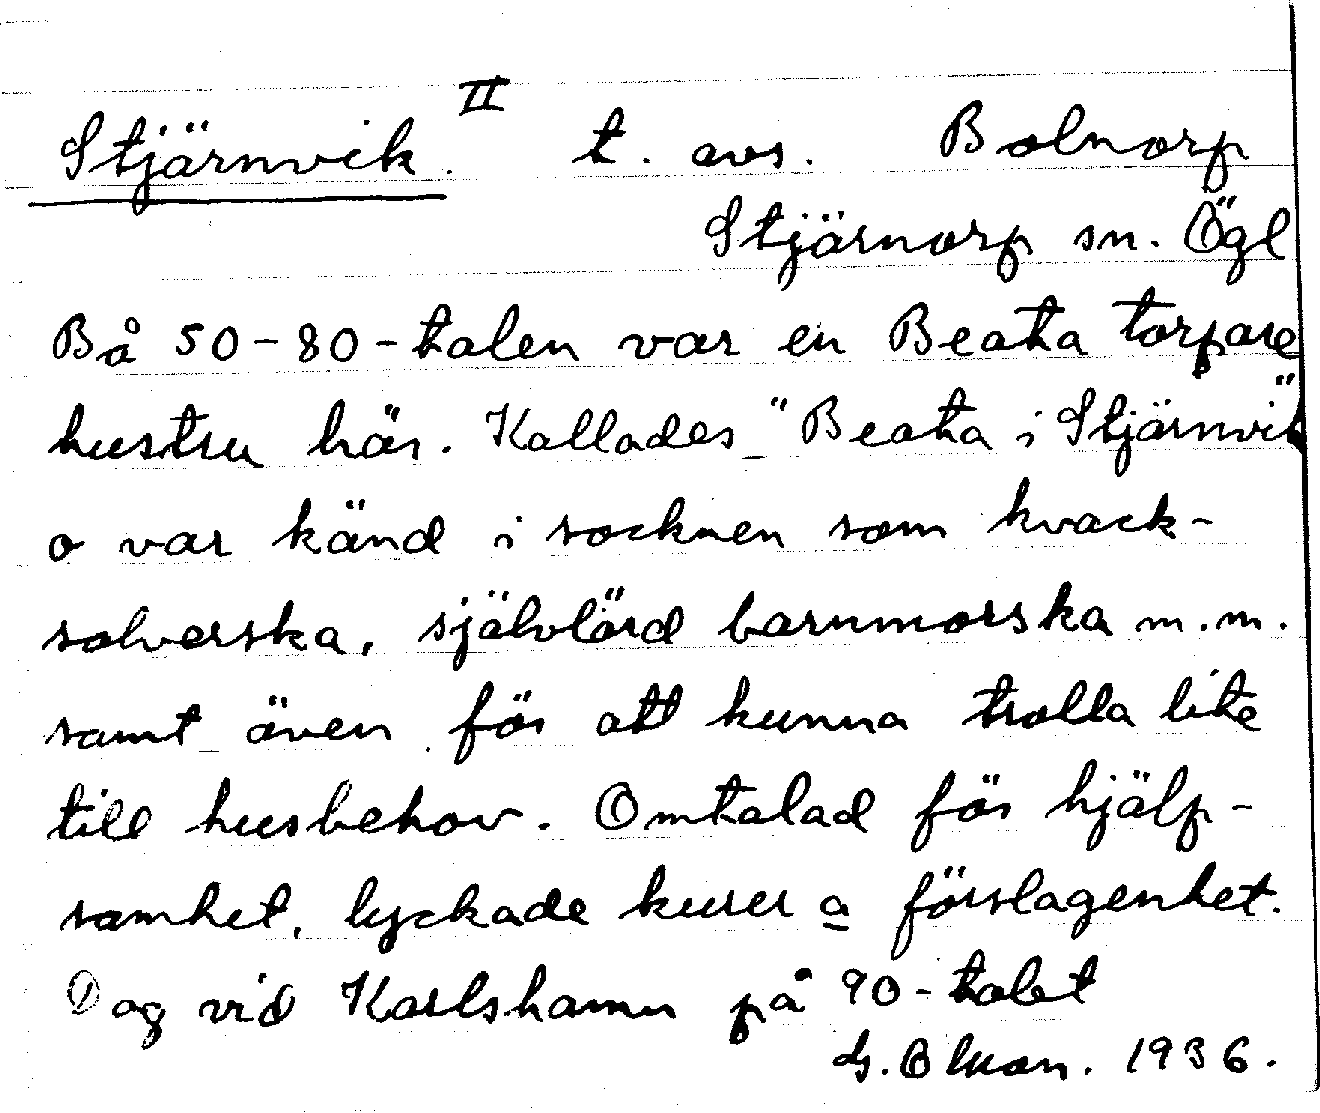 Stjärnvik. II t. avs. Bolnorp
Stjärnorp sn. Ögl
På 50-80-talen var en Beata torpare
hustru här. Kallades "Beata i Stjärnvik"
o var känd i socknen som kvack-
salverska, självlärd barnmorska m.m.
samt även för att kunna trolla lite
till husbehov. Omtalad för hjälp-
samhet, lyckade kurer o förslagenhet.
Dog vid Karlshamn på 90-talet
1936.